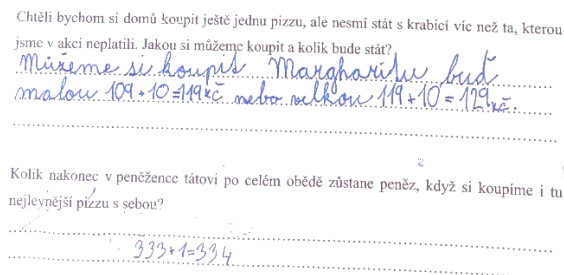 Chtěli bychom si domů koupit ještě jednu pizzu, ale nesmí stát s krabicí víc než ta, kterou
jsme v akci neplatili. Jakou si můžeme koupit a kolik bude stát?
Můžeme si koupit Margharitu buď
malou 109+10=119kč nebo velkou 119+10=129kč.
Kolik nakonec v peněžence tátovi po celém obědě zůstane peněz, když si koupíme i tu
nejlevnější pizzu s sebou?
333+1=334